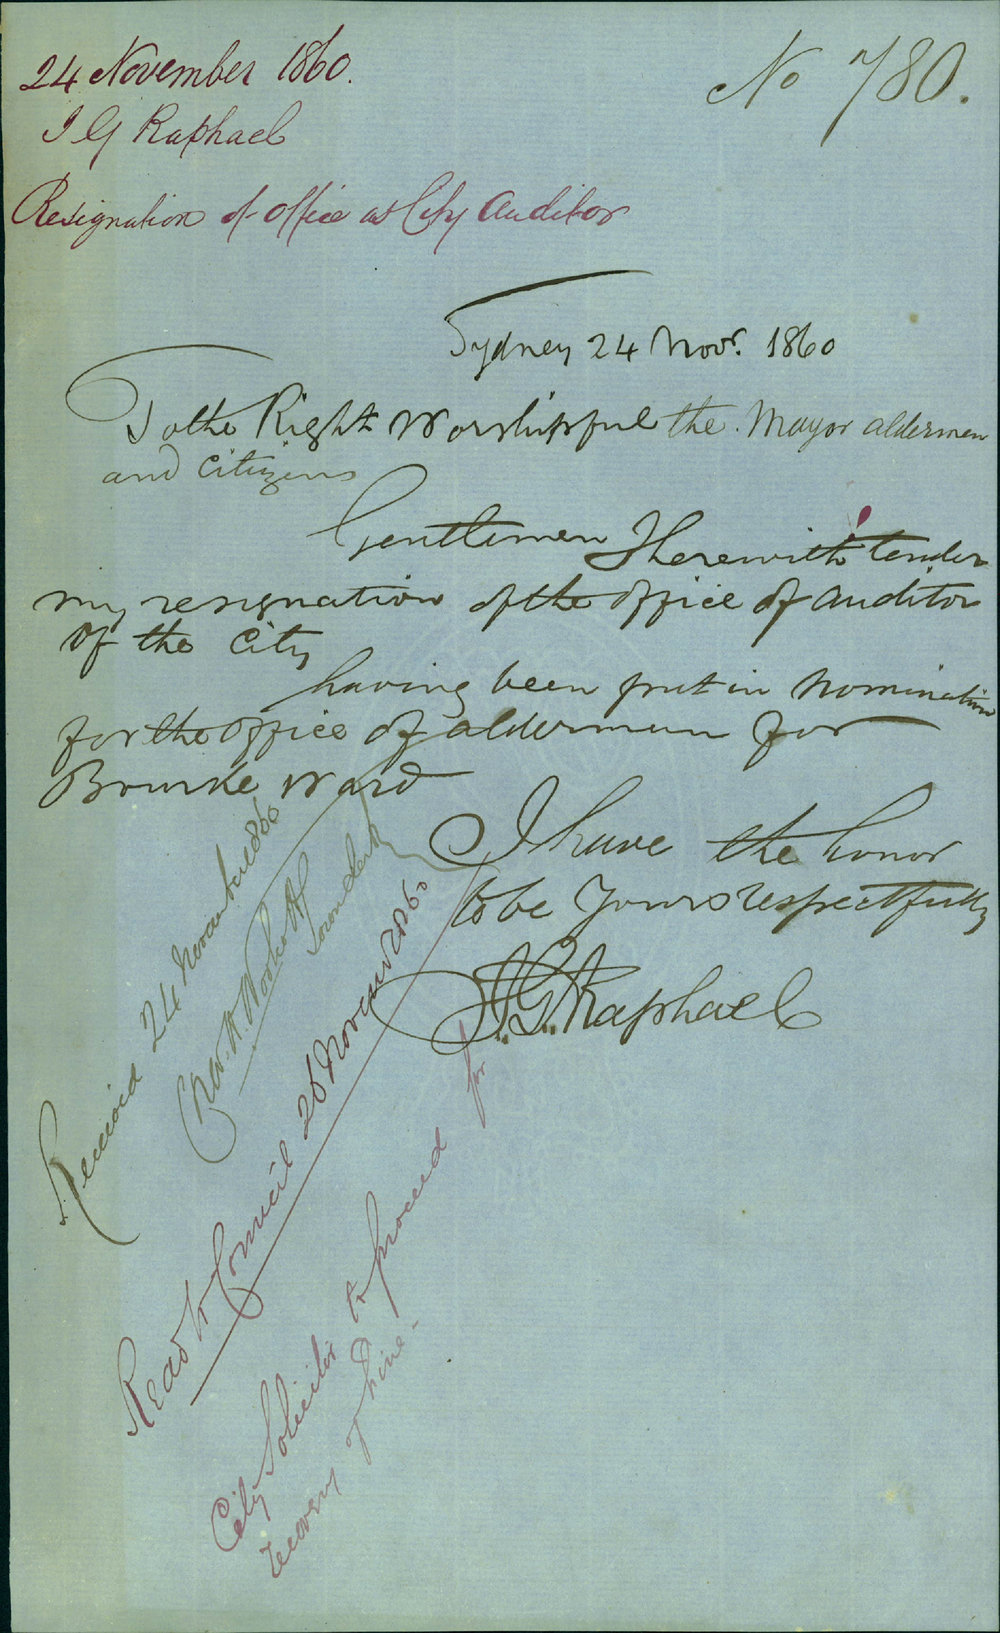 24 November 1860.
No 780.
J G Raphael
Resignation of office as City Auditor
Sydney 24 Novr. 1860
To the Right Worshipful the Mayor aldermen
and Citizens
Gentlemen I herewith tender
my resignation of the office of auditor
of the City
having been put in nomination
for the office of alderman for
Bourke Ward
I have the honor
to be Yours respectfully
J. G. Raphael
Received 24 November 1860
Chas. H. Woolcott
Town Clerk
Read to Council 26 November 1860
City Solicitor to proceed for
recovery of fine-